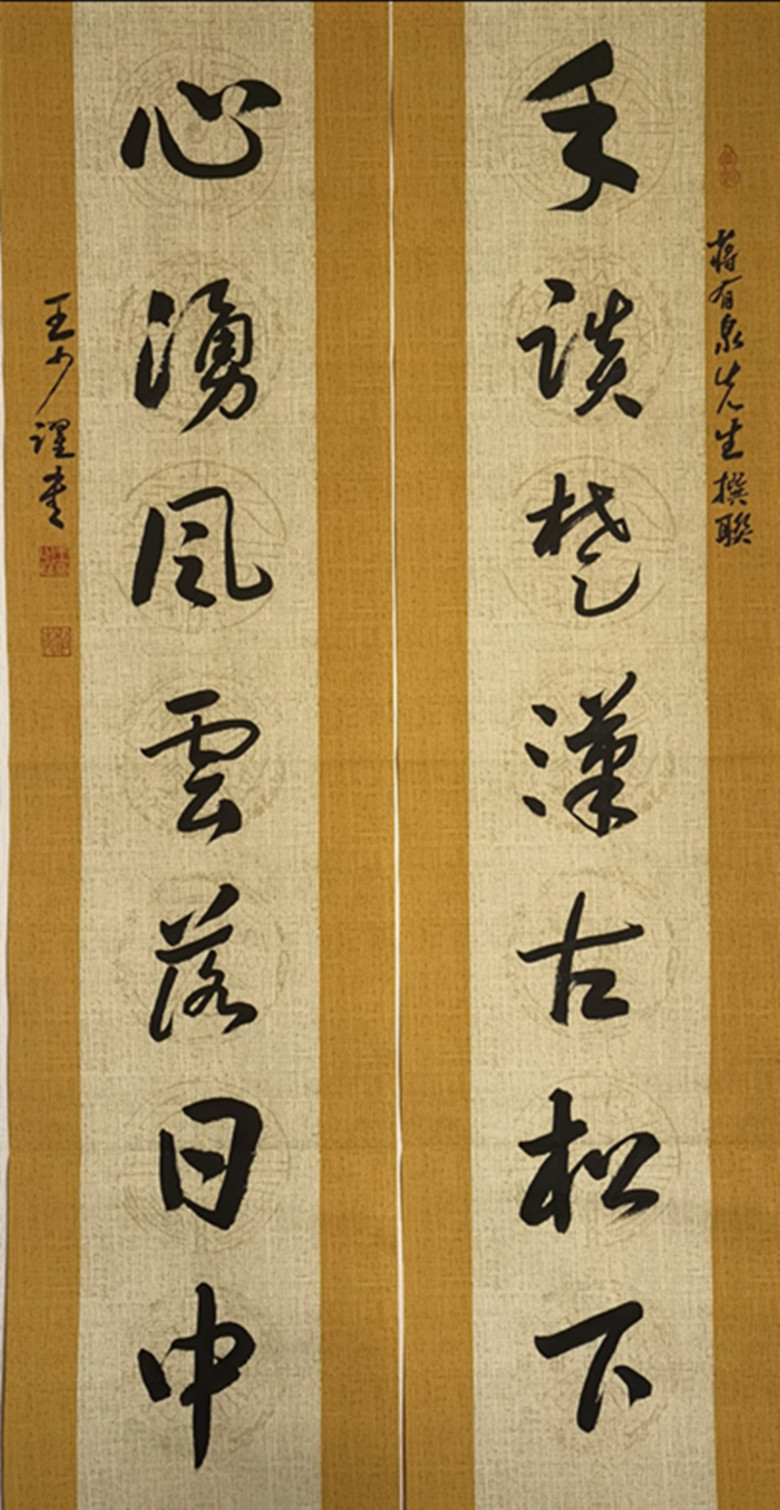 蒋有泉先生撰聯
手談楚漢古松下
心湧風雲落日中
王少謹書